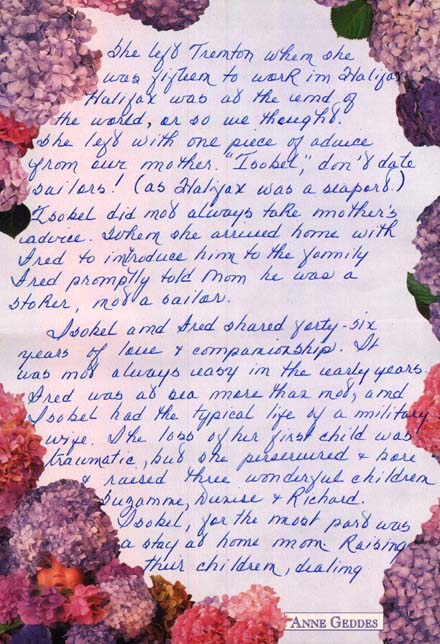 She left Trenton when she
was fifteen to work in Halifax
Halifax was at the end of
the world, or so we thought.
She left with one piece of advice
from our mother. "Isobel," don't date
sailors! (as Halifax was a seaport.)
Isobel did not always take mother's
advice. When she arrived home with
Fred to introduce him to the family
Fred promptly told Mom he was a
stoker, not a sailor.
Isobel and Fred shared forty-six
years of love & companionship. It
was not always easy in the early years.
Fred was at sea more than not, and
Isobel had the typical life of a military
wife. The loss of her first child was
traumatic, but she persevered & bore
& raised three wonderful children
Suzanne, Denise & Richard.
Isobel, for the most part was
a stay at home mom. Raising
their children, dealing
ANNE GEDDES